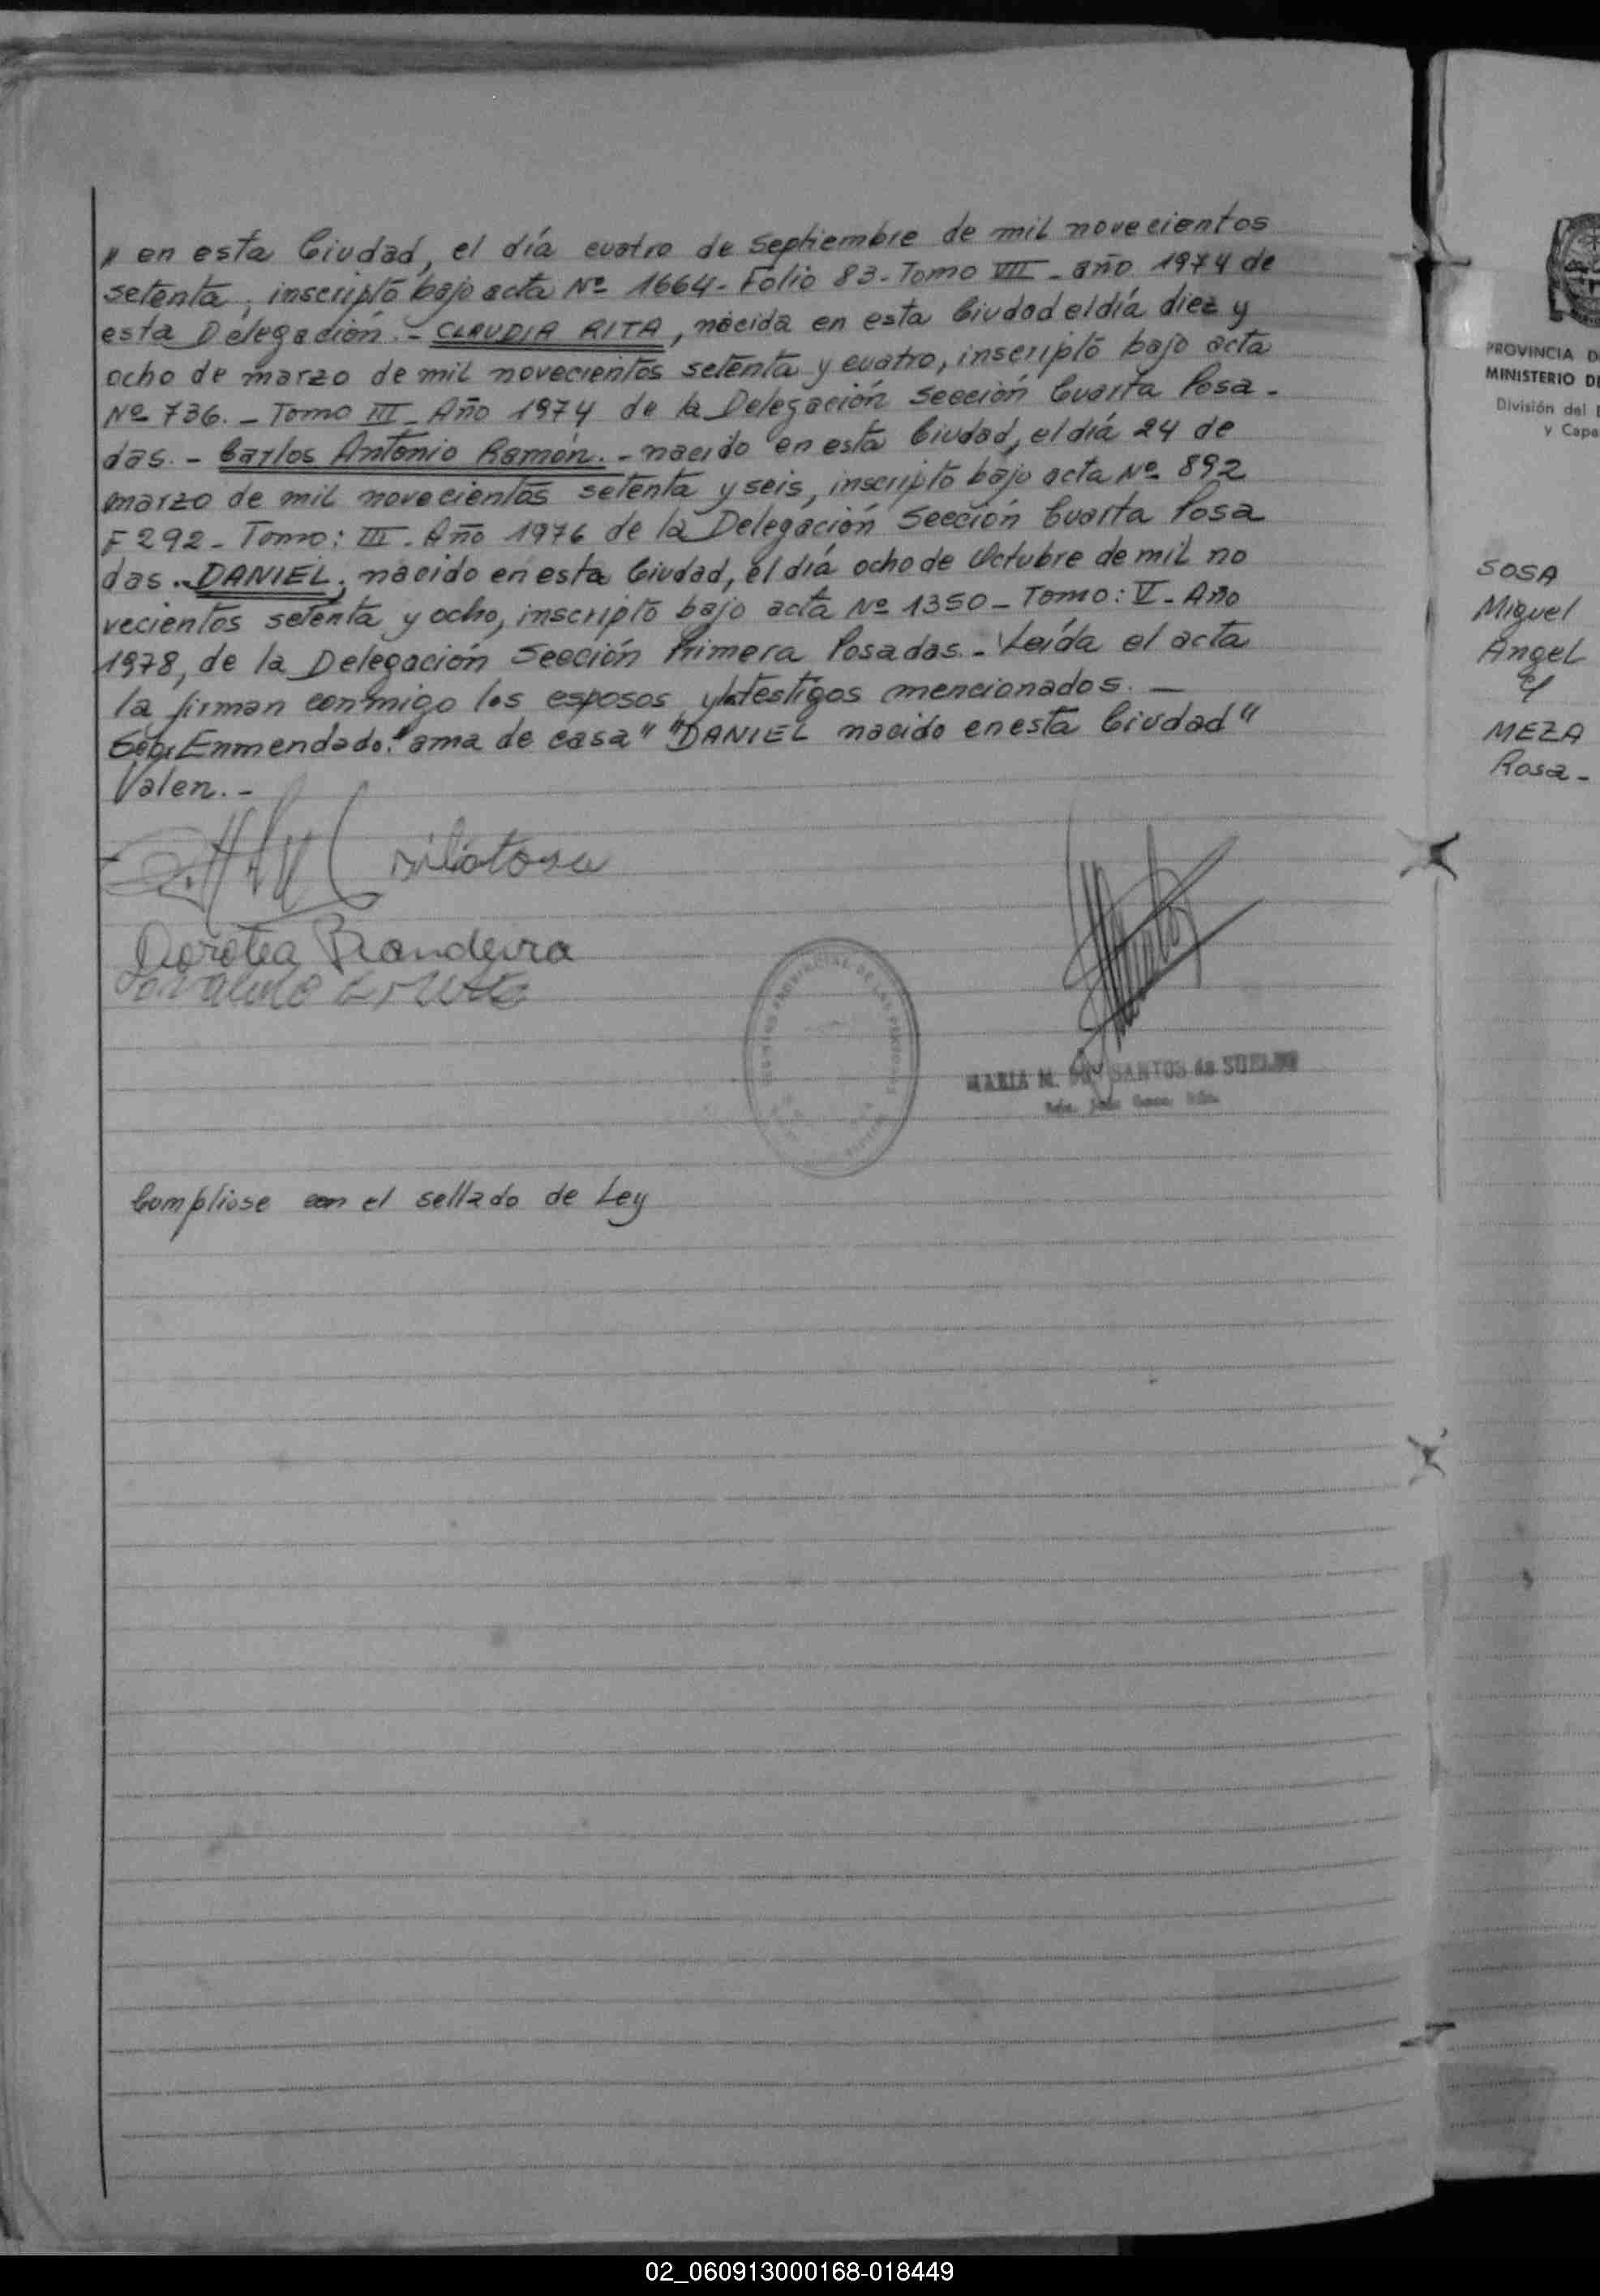 " en esta Ciudad, el día cuatro de Septiembre de mil novecientos
setenta, inscriptó bajo acta Nº 1664- Folio 83- Tomo VIII - año 1974 de
esta Delegación.- CLAUDIA RITA, nacida en esta Ciudad el día diez y
ocho de marzo de mil novecientos setenta y cuatro, inscriptó bajo acta
Nº 736. - Tomo III - Año 1974 de la Delegación Sección Cuarta Posa-
das. - Carlos Antonio Ramón. - nacido en esta Ciudad, el día 24 de
marzo de mil novecientos setenta y seis, inscriptó bajo acta Nº 892
F 292 - Tomo: III - Año 1976 de la Delegación Sección Cuarta Posa
das.- DANIEL, nacido en esta Ciudad, el día ocho de Octubre de mil no
vecientos setenta y ocho, inscriptó bajo acta Nº 1350 - Tomo: V - Año
1978, de la Delegación Sección Primera Posadas.- Leída el acta
la firman conmigo los esposos y testigos mencionados. -
Enmendado: "ama de casa" "DANIEL nacido en esta Ciudad"
Valen. -
Dorotea Brandeira
MARIA M. SANTOS de SUELDO
Compliose con el sellado de Ley
PROVINCIA D
MINISTERIO DE
División del
y Capa
SOSA
Miguel
Angel
c/
MEZA
Rosa -
02_060913000168-018449